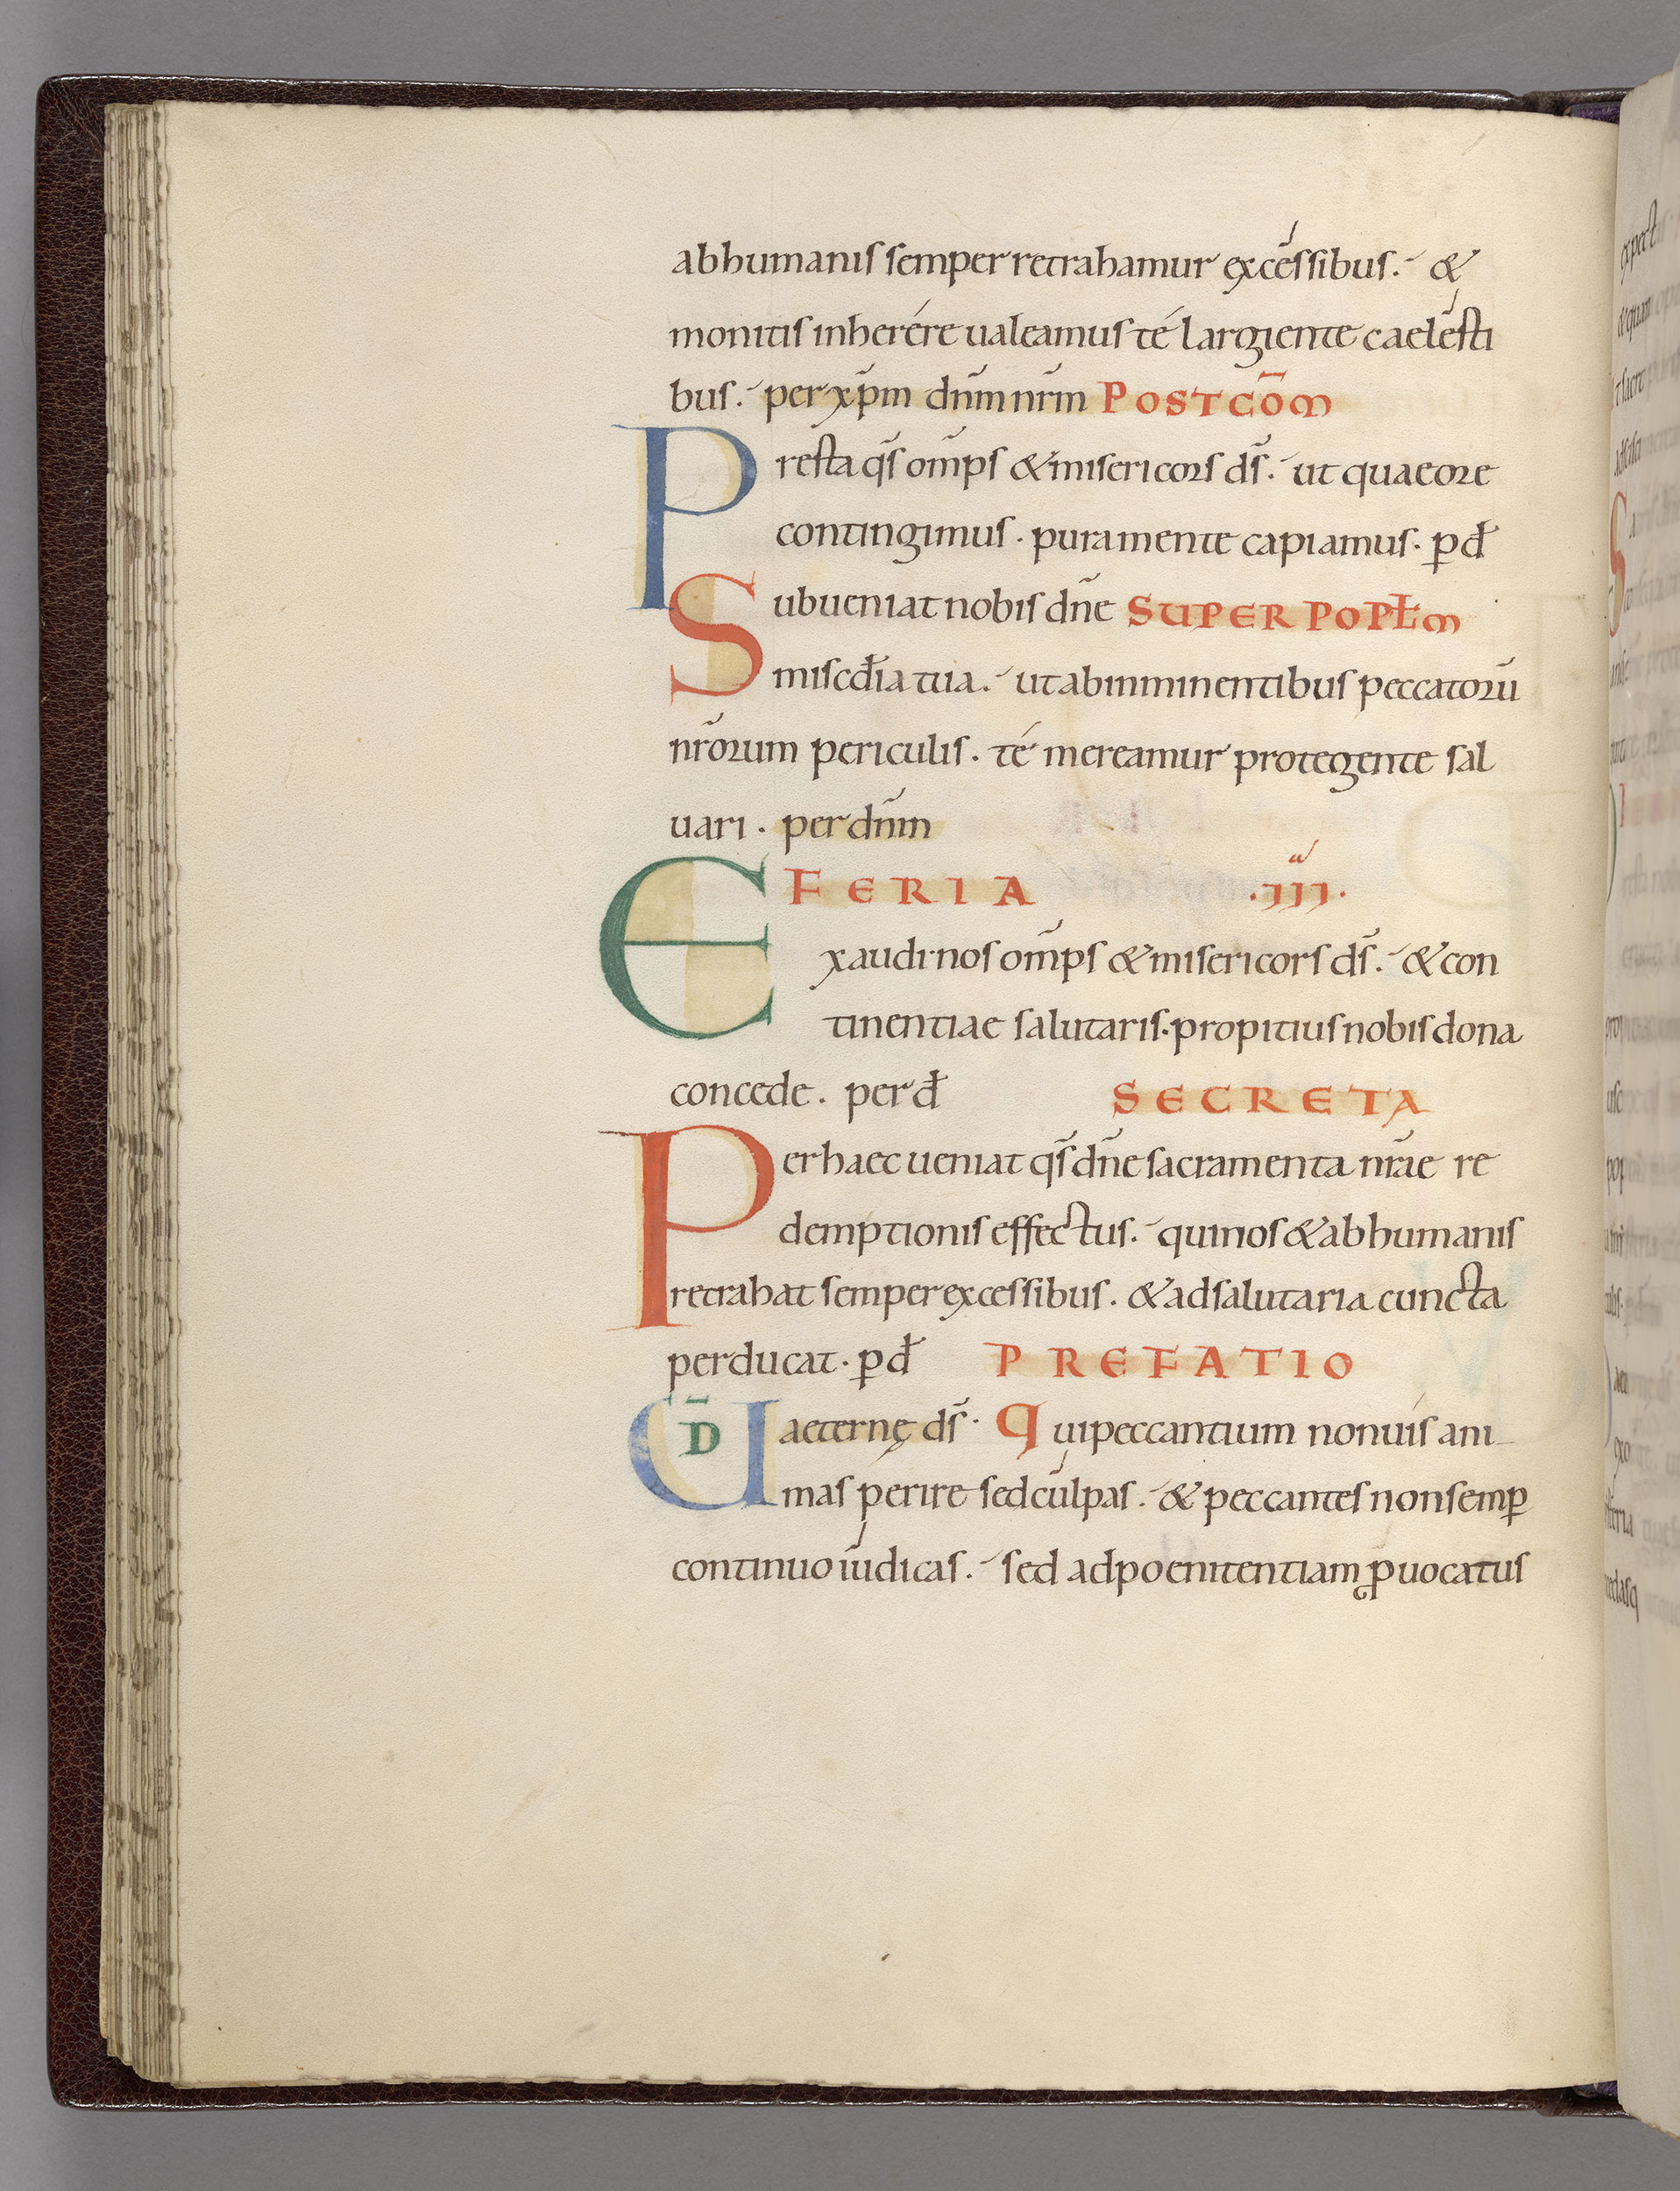 abhumanis semper retrahamur excéssibus. &
monitis inherére ualeamus té largiente caelésti
bus. per xp̄m dn̄m nr̄m POSTCŌM
Presta qs̄ om̄ps & misericors ds̄. ut quae ore
contingimus. pura mente capiamus. ꝑ đ
Subueniat nobis dn̄e SUPER POPŁM
misc̄đia tua. ut ab inminentibus peccatorū
nr̄orum periculis. té mereamur protegente sal
uari. per dn̄m
FERIA .III.
Exaudi nos om̄ps & misericors ds̄. & con
tinentiae salutaris. propitius nobis dona
concede. per đ SECRETA
Per haec ueniat qs̄ dn̄e sacramenta nr̄ae re
demptionis effectus. qui nos & ab humanis
retrahat semper excessibus. & ad salutaria cuncta
perducat. ꝑ đ PREFATIO
UD̄ aeternę ds̄. Qui peccantium non uís ani
mas perire sed cúlpas. & peccantes non semꝑ
continuo iúdicas. sed ad poenitentiam ꝓuocatus